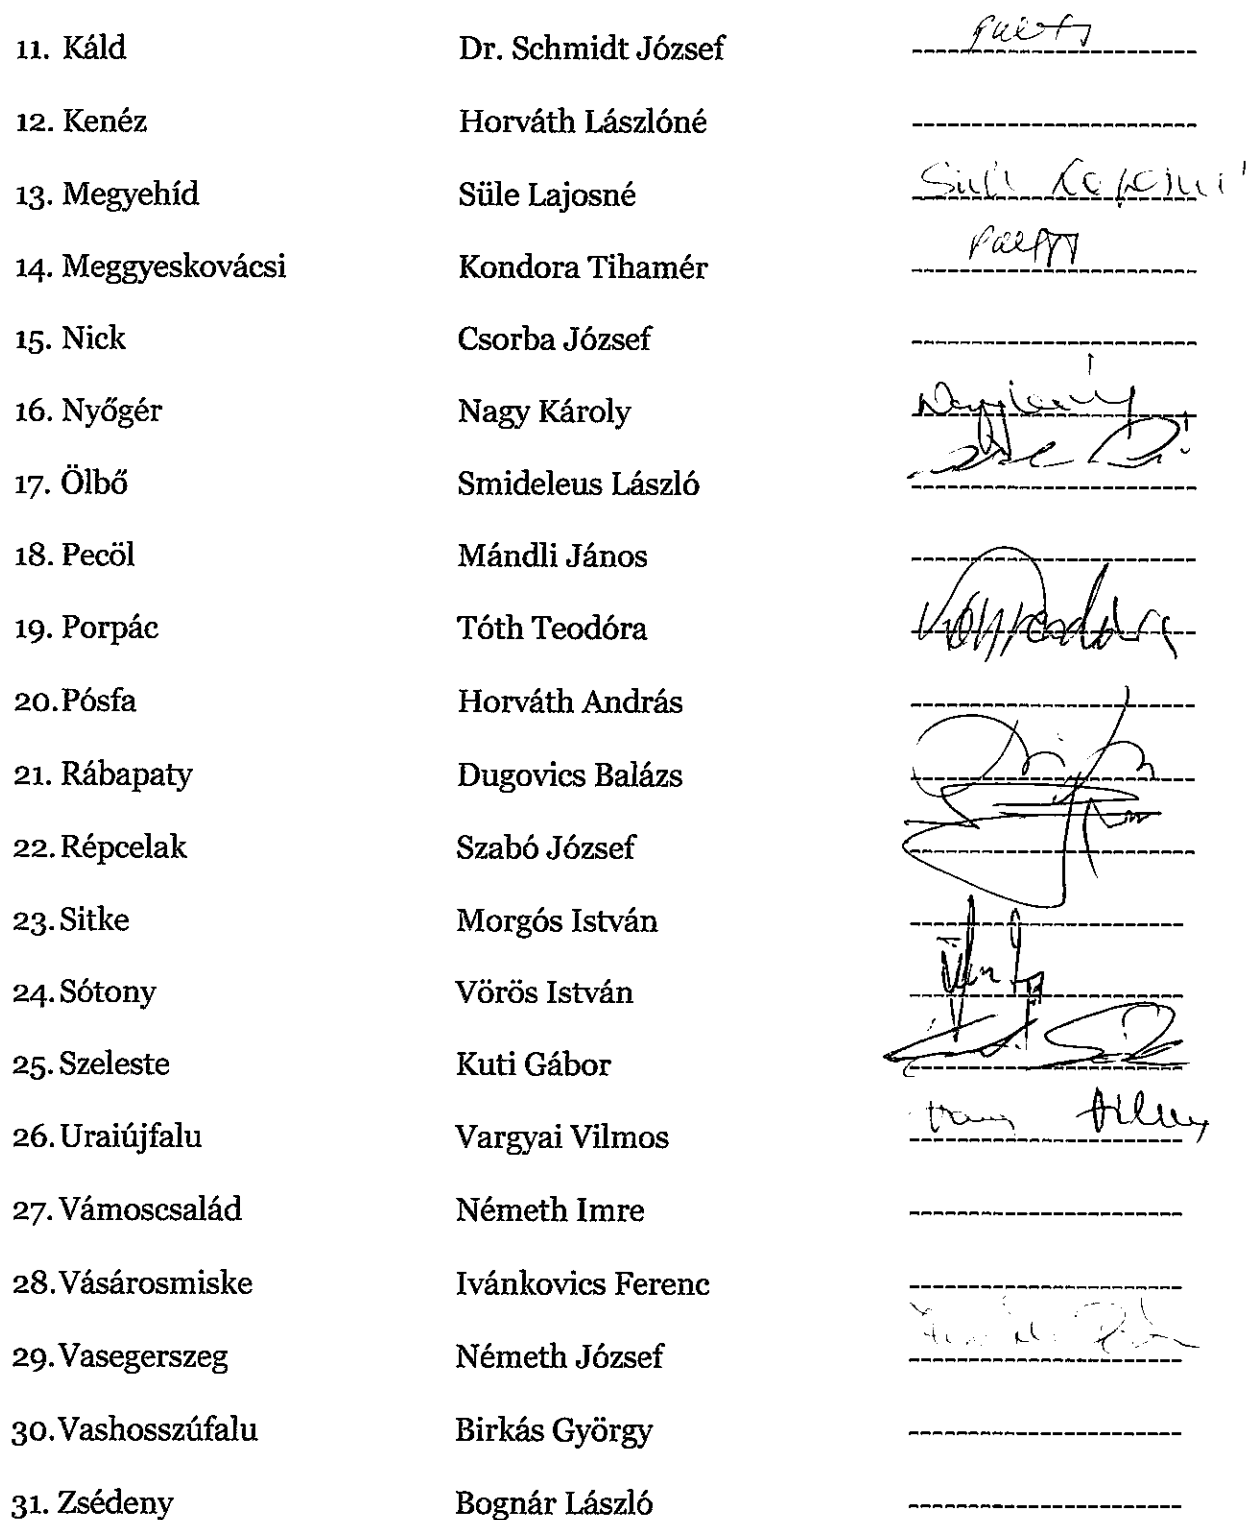 11. Káld Dr. Schmidt József
12. Kenéz Horváth Lászlóné
13. Megyehíd Süle Lajosné Süle Lajosné
14. Meggyeskovácsi Kondora Tihamér
15. Nick Csorba József
16. Nyőgér Nagy Károly Nagy Károly
17. Ölbő Smideleus László
18. Pecöl Mándli János
19. Porpác Tóth Teodóra Tóth Teodóra
20. Pósfa Horváth András
21. Rábapaty Dugovics Balázs
22. Répcelak Szabó József
23. Sitke Morgós István
24. Sótony Vörös István
25. Szeleste Kuti Gábor
26. Uraiújfalu Vargyai Vilmos
27. Vámoscsalád Németh Imre
28. Vásárosmiske Ivánkovics Ferenc
29. Vasegerszeg Németh József
30. Vashosszúfalu Birkás György
31. Zsédeny Bognár László